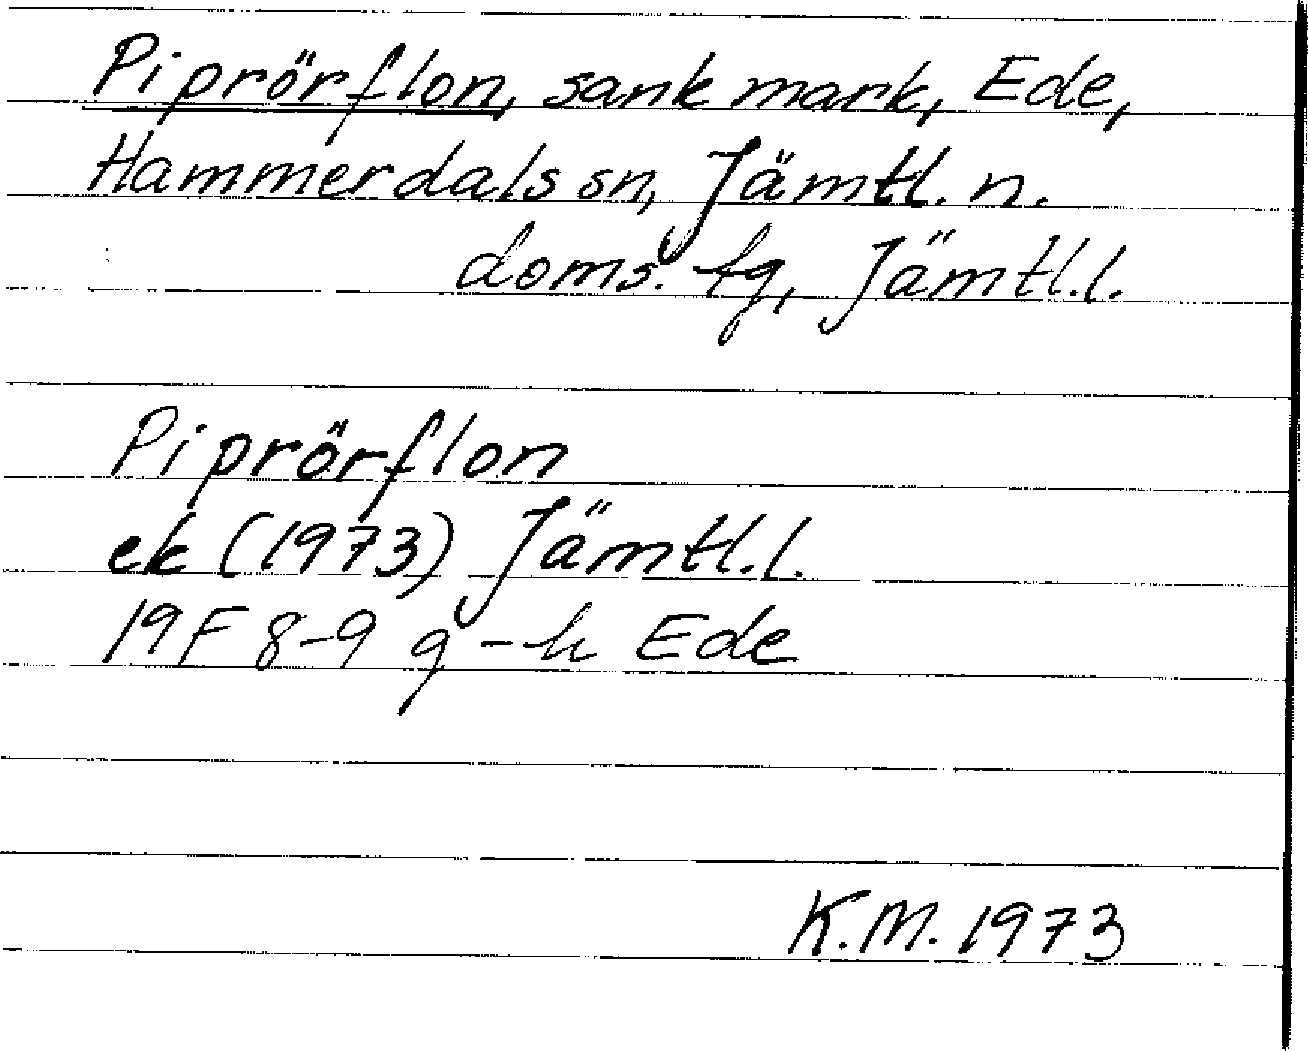 Piprörflon, sank mark, Ede,
Hammerdals sn, Jämtl. n.
doms. fg, Jämtl.l.
Piprörflon
ek (1973) Jämtl.l.
19F 8-9 g-h Ede
K.M. 1973